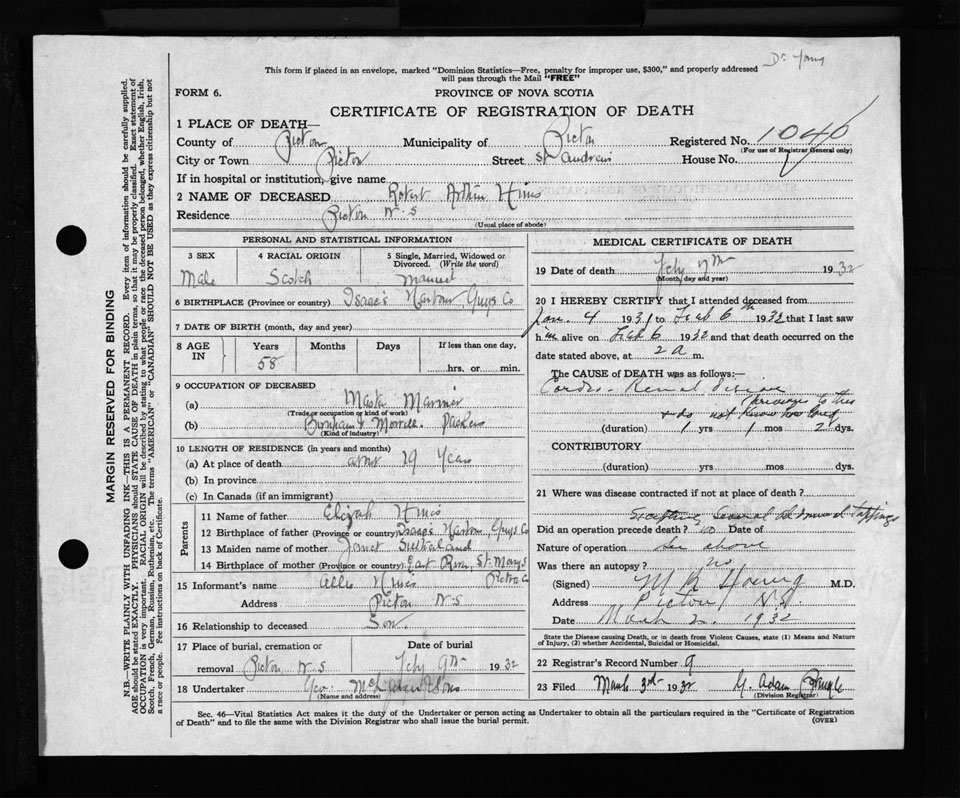 Dr Young
This form if placed in an envelope, marked "Dominion Statistics—Free, penalty for improper use, $300," and properly addressed
will pass through the Mail "FREE"
FORM 6.
PROVINCE OF NOVA SCOTIA
CERTIFICATE OF REGISTRATION OF DEATH
1 PLACE OF DEATH—
County of Pictou Municipality of Pictou Registered No. 1040
(For use of Registrar General only)
City or Town Pictou Street St Andrews House No.
If in hospital or institution, give name
2 NAME OF DECEASED Robert Arthur Hines
Residence Pictou N.S
(Usual place of abode)
PERSONAL AND STATISTICAL INFORMATION
3 SEX 4 RACIAL ORIGIN 5 Single, Married, Widowed or
Divorced. (Write the word)
Male Scotch Married
6 BIRTHPLACE (Province or country) Isaac's Harbour, Guys Co
7 DATE OF BIRTH (month, day and year)
8 AGE IN Years Months Days If less than one day,
58 hrs. or min.
9 OCCUPATION OF DECEASED
(a) Master Mariner
(Trade or occupation or kind of work)
(b) Burnham & Morrell Packers
(Kind of industry)
10 LENGTH OF RESIDENCE (in years and months)
(a) At place of death about 29 Years
(b) In province
(c) In Canada (if an immigrant)
Parents
11 Name of father Elizah Hines
12 Birthplace of father (Province or country) Isaac's Harbour, Guys Co
13 Maiden name of mother Janet Sutherland
14 Birthplace of mother (Province or country) East River, St. Marys
Pictou Co
15 Informant's name Allie Hines
Address Pictou N.S
16 Relationship to deceased Son
17 Place of burial, cremation or removal Pictou N.S Date of burial Feby 9th 1932
18 Undertaker Geo. & Sons
(Name and address)
MEDICAL CERTIFICATE OF DEATH
19 Date of death Feby 7th 1932
(Month, day and year)
20 I HEREBY CERTIFY that I attended deceased from
Jan. 4 1931 to Feb 6th 1932 that I last saw
him alive on Feb 6 1932 and that death occurred on the
date stated above, at 2 a m.
The CAUSE of DEATH was as follows:—
Cardio-Renal Disease
previous to this
& do not know how long
(duration) 1 yrs 1 mos 2 dys.
CONTRIBUTORY
(duration) yrs mos dys.
21 Where was disease contracted if not at place of death?
Several Abdominal Tappings
Did an operation precede death? no Date of
Nature of operation See above
Was there an autopsy? no
(Signed) M R Young M.D.
Address Pictou N.S.
Date March 2 1932
State the Disease causing Death, or in death from Violent Causes, state (1) Means and Nature
of Injury, (2) whether Accidental, Suicidal or Homicidal.
22 Registrar's Record Number 9
23 Filed March 3rd 1932 G. Adam
(Division Registrar)
Sec. 46—Vital Statistics Act makes it the duty of the Undertaker or person acting as Undertaker to obtain all the particulars required in the "Certificate of Registration
of Death" and to file the same with the Division Registrar who shall issue the burial permit.
(OVER)
MARGIN RESERVED FOR BINDING
N.B.—WRITE PLAINLY WITH UNFADING INK—THIS IS A PERMANENT RECORD. Every item of information should be carefully supplied.
AGE should be stated EXACTLY. PHYSICIANS should STATE CAUSE OF DEATH in plain terms, so that it may be properly classified. Exact statement of
OCCUPATION is very important. RACIAL ORIGIN will be described by stating to what people or race the deceased person belonged, whether English, Irish,
Scotch, French, German, Russian, Ruthenian, etc. The terms "AMERICAN" or "CANADIAN" SHOULD NOT BE USED as they express citizenship but not
a race or people. See instructions on back of Certificate.